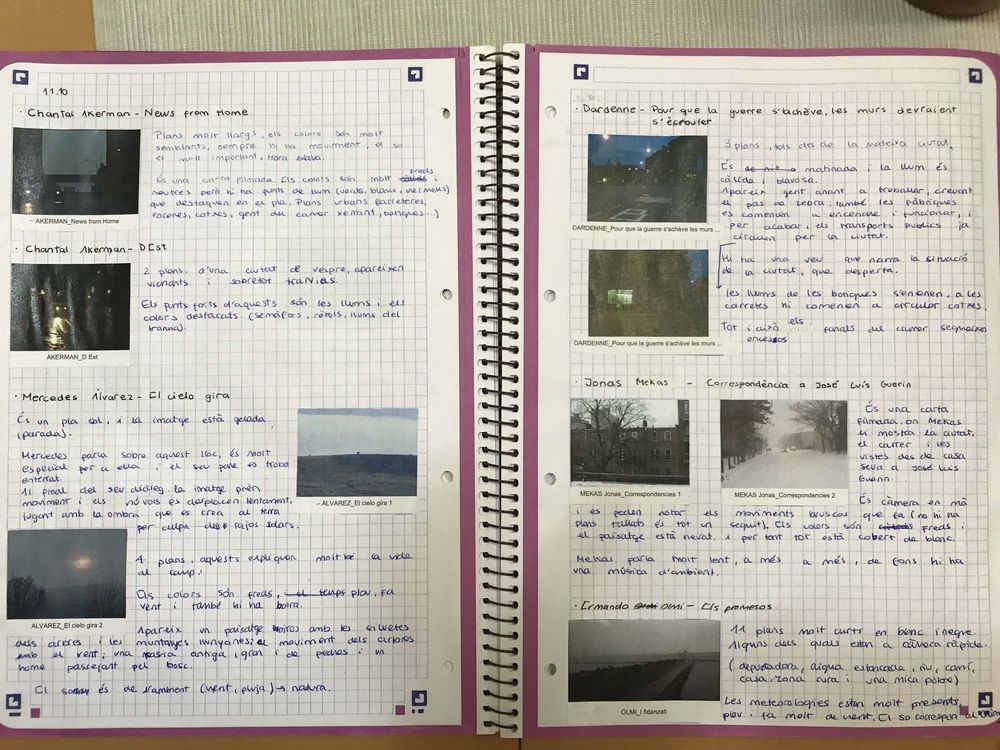 11.10
· Chantal Akerman - News from Home
Plans molt llargs, els colors són molt
semblants, sempre hi ha moviment, el so
és molt important. Hora blava.
És una carta filmada. Els colors són molt freds i
neutres però hi ha punts de llum (verds, blancs, vermells)
que destaquen en el pla. Plans urbans (carreteres,
cotxes, gent del carrer xerrant, botigues...)
– AKERMAN_News from Home
· Chantal Akerman - D'Est
2 plans. d'una ciutat de vespre, apareixen
vianants i sobretot tramvias.
Els punts forts d'aquests són les llums i els
colors destacats (semàfors, rètols, llums del
tramvia).
AKERMAN_D Est
· Mercedes Álvarez - El cielo gira
És un pla sol, i la imatge està gelada
(parada).
Mercedes parla sobre aquest lloc, és molt
especial per a ella i el seu pare es troba
enterrat.
Al final del seu diàleg la imatge pren
moviment i els núvols es desplacen lentament,
jugant amb la ombra que es crea al terra
per culpa dels rajos solars.
– ALVAREZ_El cielo gira 1
4 plans, aquests expliquen molt bé la vida
al camp.
Els colors són freds, plou, fa
vent i també hi ha boira.
ALVAREZ_El cielo gira 2
Apareix un paisatge boirós amb les siluetes
dels arbres i les muntanyes llunyanes; el moviment dels arbres
amb el vent; una masia antiga, gran i de pedres i un
home passejant pel bosc.
El so és de l'ambient (vent, pluja) → natura.
· Dardenne - Pour que la guerre s'achève, les murs devraient
s'écrouler
3 plans, tots des de la mateixa ciutat.
És matinada i la llum és
càlida i blavosa.
Apareix gent anant a treballar, creuant
el pas de zebra; també les fàbriques
es comencen a encendre i funcionar, i
per acabar, els transports públics ja
circulen per la ciutat.
DARDENNE_Pour que la guerre s'achève les murs ...
Hi ha una veu que narra la situació
de la ciutat, que desperta.
les llums de les botigues s'encenen, a les
carretes hi comencen a circular cotxes.
Tot i això els fanals del carrer segueixen
encesos
DARDENNE_Pour que la guerre s'achève les murs ...
· Jonas Mekas - Correspondència a José Luís Guerin
És una carta
filmada on Mekas
li mostra la ciutat,
el carrer i les
vistes des de casa
seva a José Luis
Guerin.
MEKAS Jonas_Correspondencies 1
MEKAS Jonas_Correspondencies 2
És càmera en mà
i es poden notar els moviments bruscos que fa (no hi ha
plans tallats és tot un seguit). Els colors són freds i
el paisatge està nevat, i per tant tot està cobert de blanc.
Mekas parla molt lent, a més a més, de fons hi ha
una música d'ambient.
· Ermando Olmi - Els promesos
11 plans molt curts en blanc i negre.
Alguns dels quals estan a càmera ràpida.
(depuradora, aigua estancada, riu, camí,
casa, zona rural i una mica pobre)
OLMI_I fidanzati
Les meteorologies estan molt presents,
plou i fa molt de vent. El so correspon al